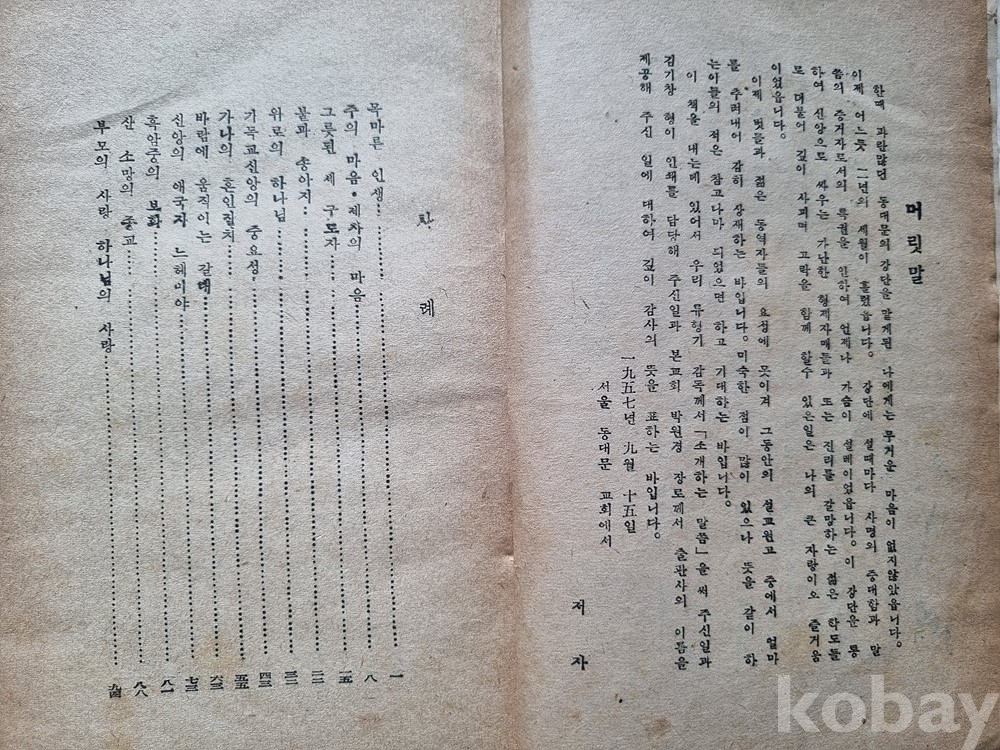 머릿말
한때 파란많던 동대문의 강단을 맡게된 나에게는 무거운 마음이 없지않았읍니다.
이제 어느듯 二년의 세월이 흘렀읍니다. 강단에 설때마다 사명의 중대함과 말
씀의 증거자로서의 특권을 인하여 언제나 가슴이 설레이었읍니다. 이 강단을 통
하여 신앙으로 싸우는 가난한 형제자매들과 또는 진리를 갈망하는 젊은 학도들
로 더불어 깊이 사괴며 고락을 함께 할수 있은일은 나의 큰 자랑이오 즐거움
이었읍니다.
이제 벗들과 젊은 동역자들의 요청에 못이겨 그동안의 설교원고 중에서 얼마
를 추려내어 감히 상재하는 바입니다. 미숙한 점이 많이 있으나 뜻을 같이 하
는이들의 적은 참고나마 되었으면 하고 기대하는 바입니다.
이 책을 내는데 있어서 우리 류형기 감독께서 「소개하는 말씀」을 써 주신일과
김기창 형이 인쇄를 담당해 주신일과 본교회 박원경 장로께서 출판사의 이름을
제공해 주신 일에 대하여 깊이 감사의 뜻을 표하는 바입니다.
一九五七년 九월 十五일
서울 동대문 교회에서
저 자
차 례
목마른 인생…一
주의 마음·제차의 마음…八
그릇된 세 구도자…一五
불과 송아지…二二
위로의 하나님…三二
기독교신앙의 중요성…四三
가나의 혼인잔치…五五
바람에 움직이는 갈대…六三
신앙의 애국자 느헤미야…七三
흑암중의 보화…八一
산 소망의 종교…八八
부모의 사랑 하나님의 사랑…九四
kobay